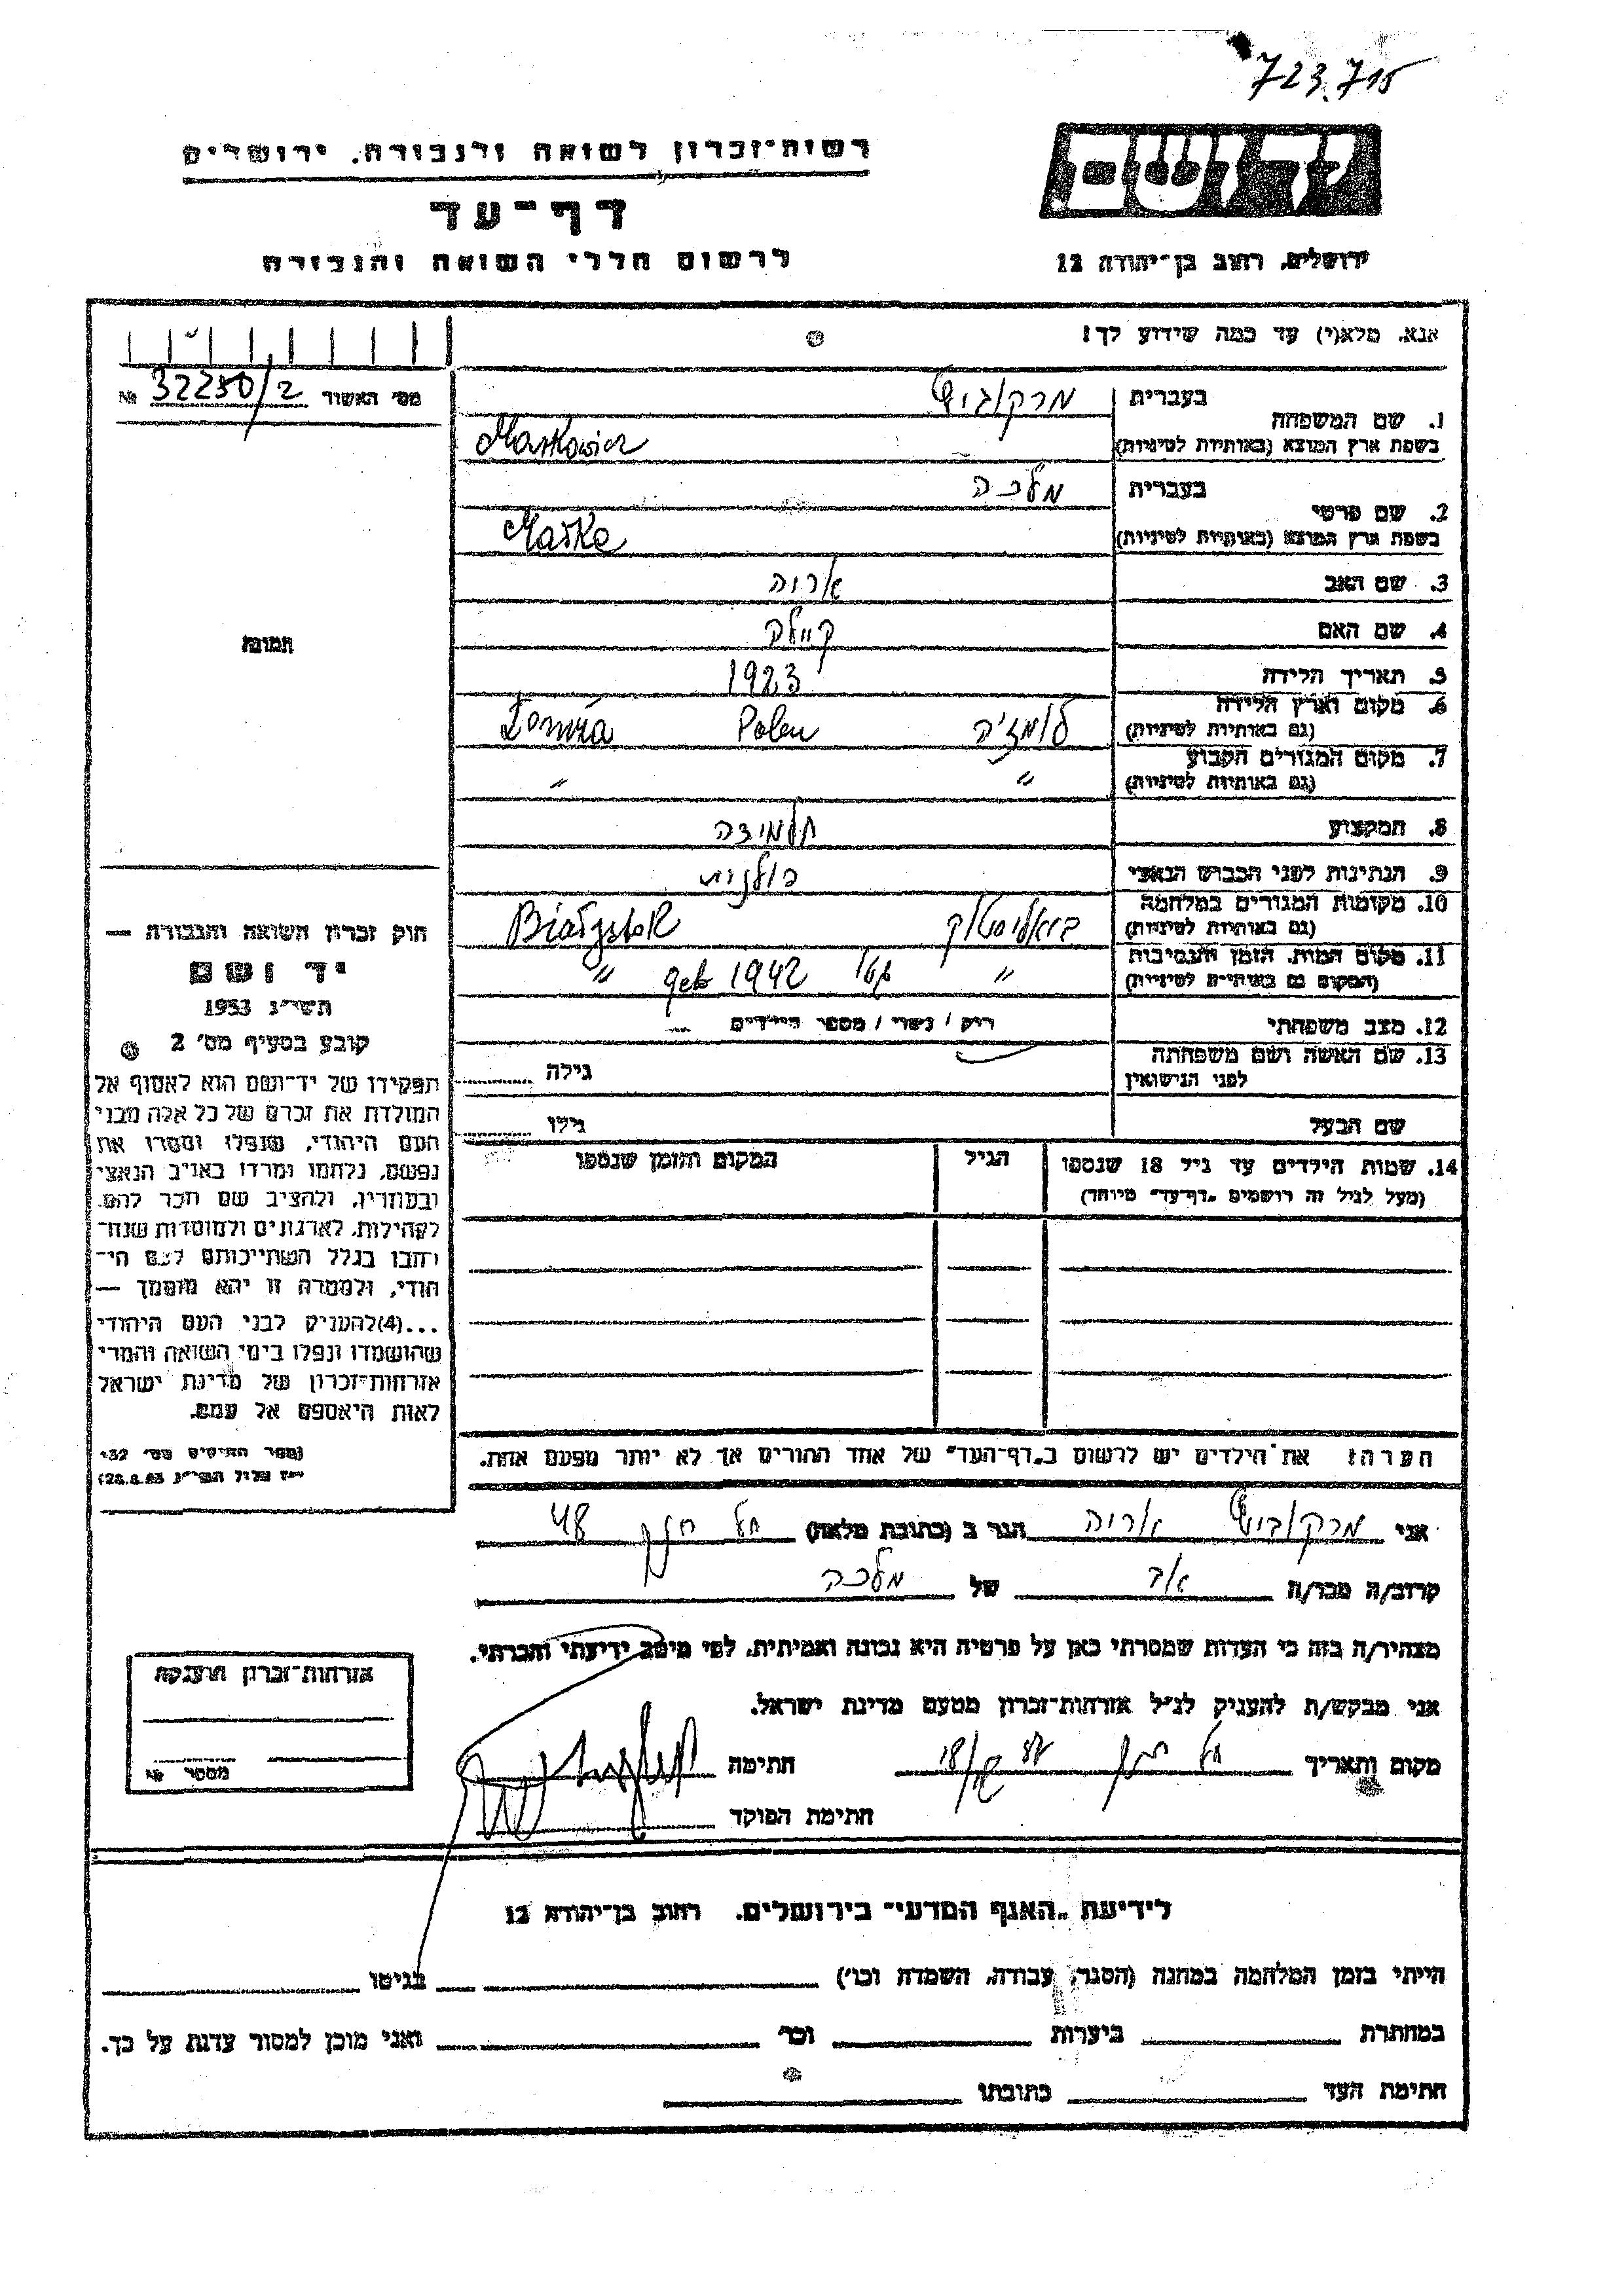 723.715
רשות־זכרון לשואה ולגבורה, ירושלים
ידושם
דף־עד
ירושלים, רחוב בן־יהודה 12
לרשום חללי השואה והגבורה
אנא, מלא(י) עד כמה שידוע לך!
מס׳ האשור 32250/2 №
1. שם המשפחה
בעברית
מרקוביץ
בשפת ארץ המוצא (באותיות לטיניות)
Markowicz
2. שם פרטי
בעברית
מלכה
בשפת ארץ המוצא (באותיות לטיניות)
3. שם האב
אריה
4. שם האם
קיילה
5. תאריך הלידה
1923
6. מקום וארץ הלידה
(גם באותיות לטיניות)
לומז׳ה Polen Łomża
7. מקום המגורים הקבוע
(גם באותיות לטיניות)
״ ״
8. המקצוע
תלמידה
9. הנתינות לפני הכבוש הנאצי
פולנית
10. מקומות המגורים במלחמה
(גם באותיות לטיניות)
ביאליסטוק Białystok
11. מקום המות, הזמן והנסיבות
(המקום גם באותיות לטיניות)
״ 1942 ״
12. מצב משפחתי
רוק / נשוי / מספר הילדים
13. שם האשה ושם משפחתה
לפני הנישואין
גילה
שם הבעל
גילו
14. שמות הילדים עד גיל 18 שנספו
(מעל לגיל זה רושמים „דף־עד״ מיוחד)
הגיל
המקום והזמן שנספו
תמונה
חוק זכרון השואה והגבורה —
יד ושם
תשי״ג 1953
קובע בסעיף מס׳ 2
תפקידו של יד־ושם הוא לאסוף אל
המולדת את זכרם של כל אלה מבני
העם היהודי, שנפלו ומסרו את
נפשם, נלחמו ומרדו באויב הנאצי
ובעוזריו, ולהציב שם וזכר להם,
לקהילות, לארגונים ולמוסדות שנח־
רבו בגלל השתייכותם לעם הי־
הודי, ולמטרה זו יהא מוסמך —
...(4) להעניק לבני העם היהודי
שהושמדו ונפלו בימי השואה והמרי
אזרחות־זכרון של מדינת ישראל
לאות היאספם אל עמם.
(ספר החוקים מס׳ 132,
י״ז אלול תשי״ג 28.8.53)
הערה: את הילדים יש לרשום ב„דף־העד״ של אחד ההורים אך לא יותר מפעם אחת.
אני מרקוביץ אריה הגר ב (כתובת מלאה) חנן 48
קרוב/ה מכר/ה אב של מלכה
מצהיר/ה בזה כי העדות שמסרתי כאן על פרטיה היא נכונה ואמיתית, לפי מיטב ידיעתי והכרתי.
אני מבקש/ת להעניק לנ״ל אזרחות־זכרון מטעם מדינת ישראל.
מקום ותאריך
חתימה
חתימת הפוקד
אזרחות־זכרון הוענקה
מספר №
לידיעת „האגף המדעי״ בירושלים, רחוב בן־יהודה 12
הייתי בזמן המלחמה במחנה (הסגר, עבודה, השמדה וכו׳) בגיטו
במחתרת ביערות וכו׳ ואני מוכן למסור עדות על כך.
חתימת העד כתובתו